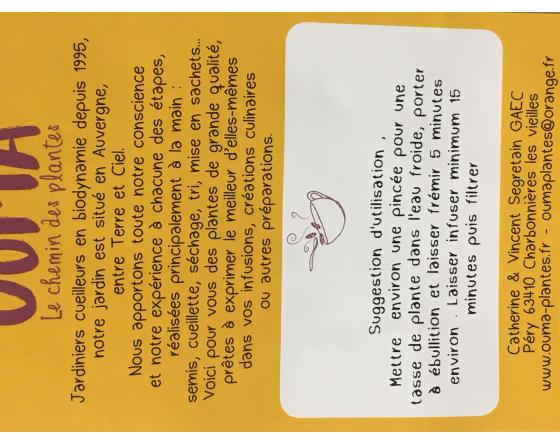 OUMA
Le chemin des plantes
Jardiniers cueilleurs en biodynamie depuis 1995,
notre jardin est situé en Auvergne,
entre Terre et Ciel.
Nous apportons toute notre conscience
et notre expérience à chacune des étapes,
réalisées principalement à la main :
semis, cueillette, séchage, tri, mise en sachets...
Voici pour vous des plantes de grande qualité,
prêtes à exprimer le meilleur d'elles-mêmes
dans vos infusions, créations culinaires
ou autres préparations.
Suggestion d'utilisation ,
Mettre environ une pincée pour une
tasse de plante dans l'eau froide, porter
à ébullition et laisser frémir 5 minutes
environ . Laisser infuser minimum 15
minutes puis filtrer
Catherine & Vincent Segretain GAEC
Péry 63410 Charbonnières les vieilles
www.ouma-plantes.fr - oumaplantes@orange.fr